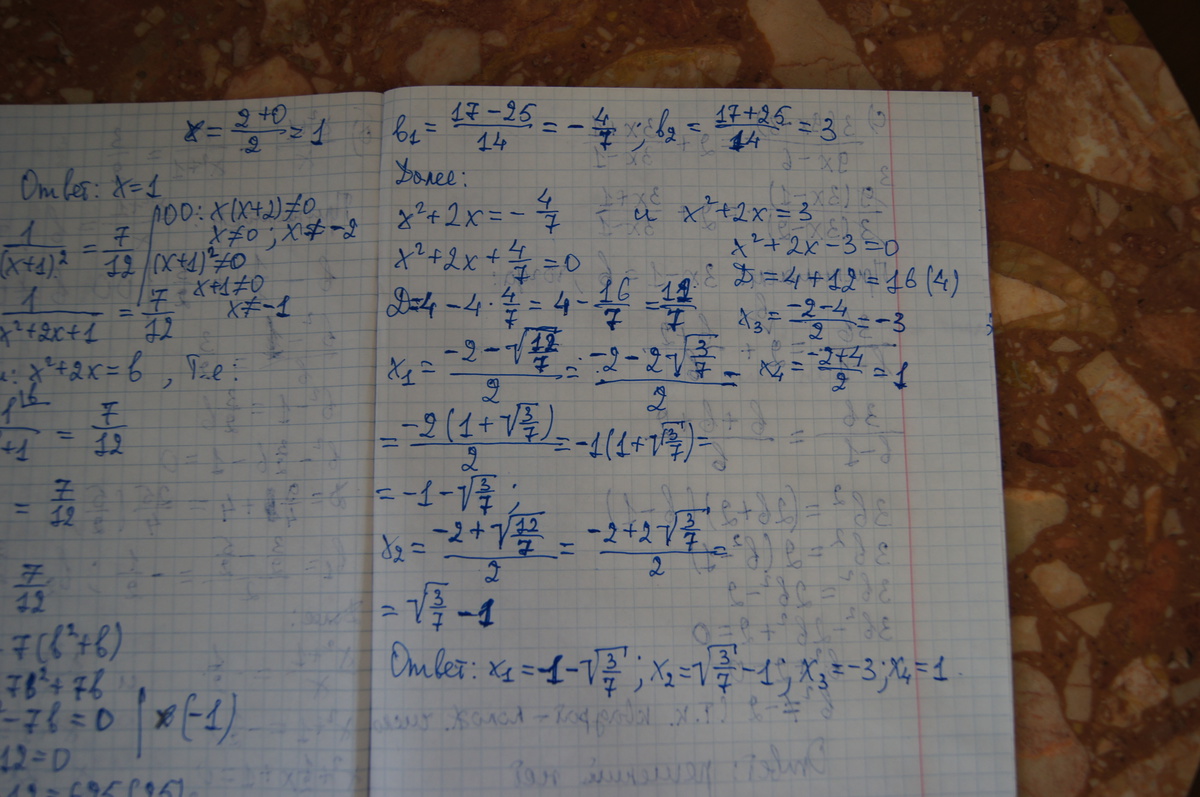 x = (2+0)/2 = 1
Ответ: x=1
1/(x+1)² = 7/12
ОО: x(x+2)≠0
x≠0 ; x≠-2
(x+1)²≠0
x+1≠0
x≠-1
1/(x²+2x+1) = 7/12
: x²+2x=в , Т.е:
+1 = 7/12
= 7/12
7/12
7(в²+в)
7в²+7в
-7в=0 | ×(-1)
12=0
в₁ = (17-25)/14 = -4/7 ; в₂ = (17+25)/14 = 3
Далее:
x²+2x = -4/7 и x²+2x=3
x²+2x+4/7=0
x²+2x-3=0
Д=4-4·4/7=4-16/7=12/7
Д=4+12=16(4)
x₃=(-2-4)/2=-3
x₁=(-2-√(12/7))/2=(-2-2√(3/7))/2=
x₄=(-2+4)/2=1
=(-2(1+√(3/7)))/2=-1(1+√(3/7))=
=-1-√(3/7);
x₂=(-2+√(12/7))/2=(-2+2√(3/7))/2=
=√(3/7)-1
Ответ: x₁=-1-√(3/7); x₂=√(3/7)-1; x₃=-3; x₄=1.